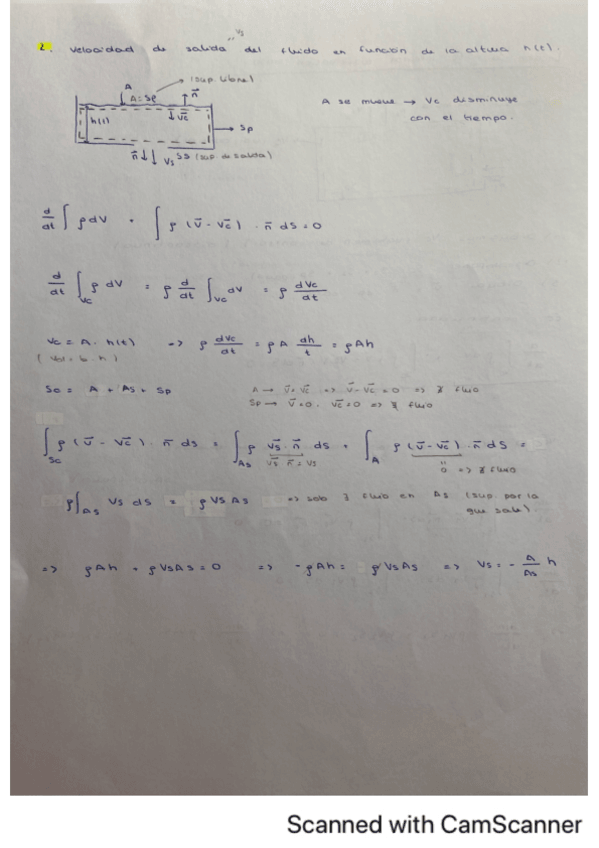 2. Velocidad de salida "vs" del fluido en función de la altura h(t).
(sup. libre)
A
A = Sp
n⃗
h(t)
v⃗c
Sp
n⃗ Vs SS (sup. de salida)
A se mueve → Vc disminuye
con el tiempo.
d/dt ∫ ρ dV + ∫ ρ (v⃗ - v⃗c) · n⃗ dS = 0
d/dt ∫Vc ρ dV = ρ d/dt ∫Vc dV = ρ dVc/dt
Vc = A · h(t) => ρ dVc/dt = ρ A dh/t = ρAh
(Vol = b · h)
Sc = A + As + Sp
A → v⃗ = v⃗c => v⃗ - v⃗c = 0 => ∄ flujo
Sp → v⃗ = 0, v⃗c = 0 => ∄ flujo
∫Sc ρ (v⃗ - v⃗c) · n⃗ ds = ∫As ρ v⃗s · n⃗ ds + ∫A ρ (v⃗ - v⃗c) · n⃗ dS =
v⃗s · n⃗ = vs
"
0 => ∄ flujo
ρ∫As Vs ds = ρ Vs As => solo ∃ flujo en As (sup. por la
que sale).
=> ρAh + ρVsAs = 0 => -ρAh = ρVsAs => Vs = - A/As h
Scanned with CamScanner